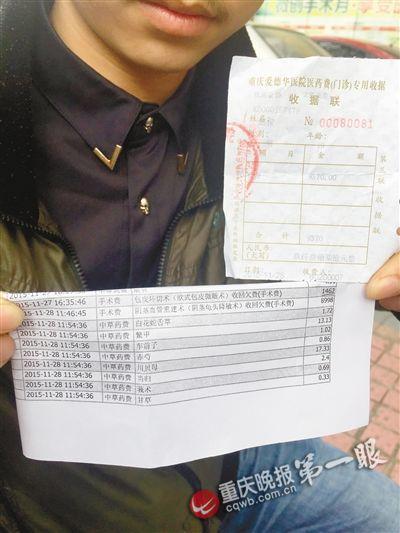 重庆爱德华医院医药费(门诊)专用收据
收据联
№ 00080081
姓名
性别: 年龄:
项目 金额
9370.00
第三联 收据联
合计 9370
人民币
(大写)
收费人:
1462
2015-11-27 16:35:46 手术费 包皮环切术(欧式包皮微雕术)收回欠费(手术费) 8998
2015-11-28 11:46:45 手术费 阴茎血管重建术(阴茎龟头降敏术)收回欠费(手术费) 1.72
2015-11-28 11:54:36 中草药费 白花蛇舌草 13.13
2015-11-28 11:54:36 中草药费 鳖甲 1.02
2015-11-28 11:54:36 中草药费 车前子 0.86
2015-11-28 11:54:36 中草药费 赤芍 17.33
2015-11-28 11:54:36 中草药费 川贝母 2.4
2015-11-28 11:54:36 中草药费 当归 0.69
2015-11-28 11:54:36 中草药费 莪术 0.33
2015-11-28 11:54:36 中草药费 甘草
重庆晚报 第一眼
cqwb.com.cn